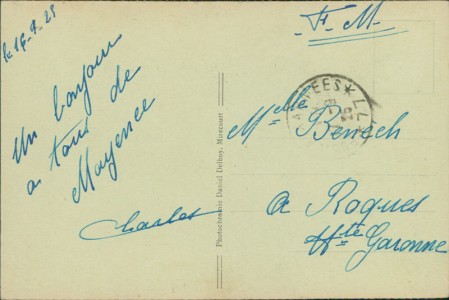 le 16-9-25
Un bonjour
a tous de
Mayence
Charles
Photochromie Daniel Delboy, Mirecourt
F. M.
Mlle Benech
a Roques
Hte Garonne